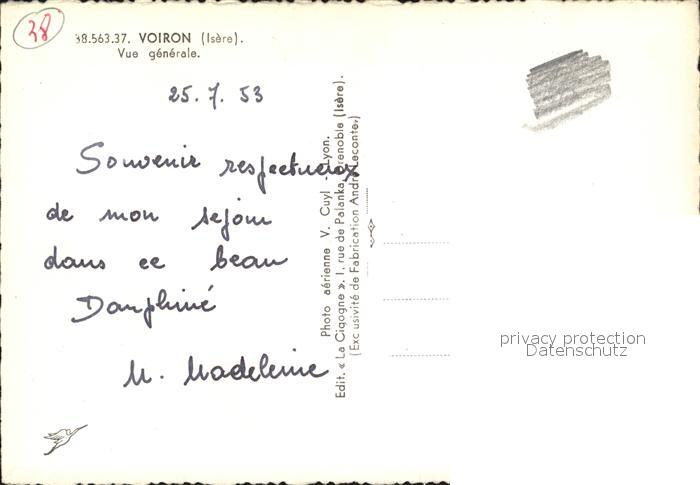 38
38.563.37. VOIRON (Isère).
Vue générale.
25. 7. 53
Souvenir respectueux
de mon sejour
dans ce beau
Dauphiné
M. Madeleine
Photo aérienne V. Cuyl - Lyon.
Edit. « La Cigogne ». 1, rue de Palanka, Grenoble (Isère).
(Exc usivité de Fabrication André Leconte.)
privacy protection
Datenschutz